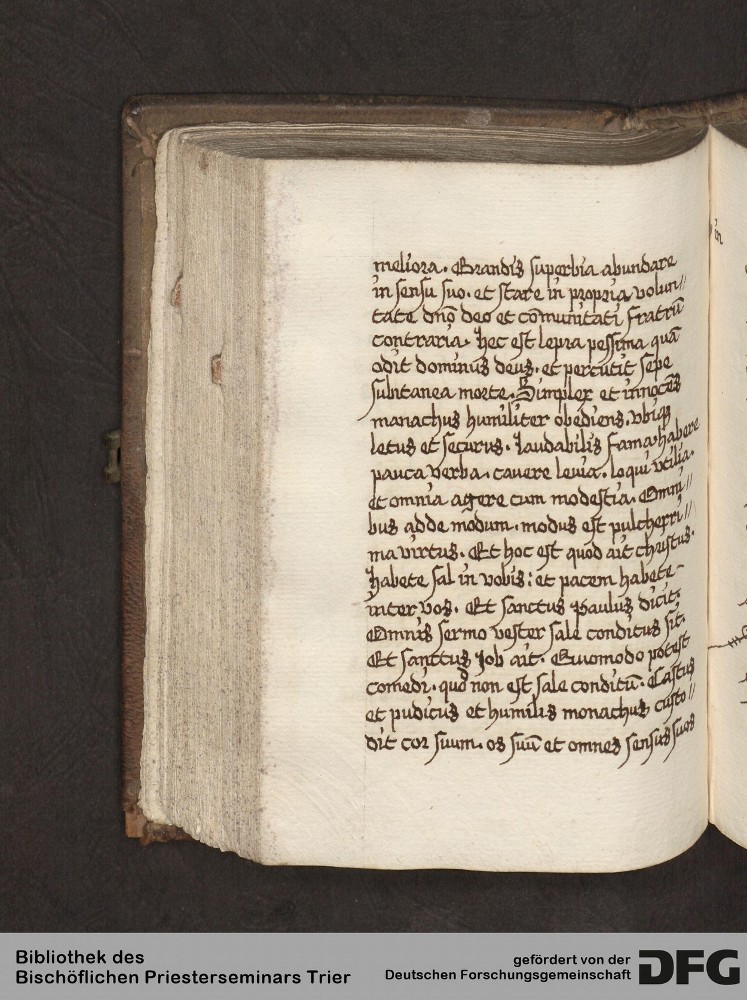 meliora. Grandis superbia abundare
in sensu suo. et stare in propria volun//
tate dn̄o deo et com̄unitati fratrū
contraria. hec est lepra pessima quā
odit dominus deus. et percutit sepe
subitanea morte. Simplex et innocēs
manachus humiliter obediens. vbiqꝫ
letus et securus. laudabilis fama. habere
pauca verba. cauere leuia. loqui vtilia.
et omnia agere cum modestia. Omni//
bus adde modum. modus est pulcherri//
ma virtus. Et hoc est quod ait christus.
habete sal in vobis: et pacem habete-
inter vos. Et sanctus paulus dicit.
Omnis sermo vester sale conditus sit.
Et sanctus Job ait. Quomodo potest
comedi. quod non est sale conditū. Castus
et pudicus et humilis monachus custo//
dit cor suum. os suū et omnes sensus suos
Bibliothek des
Bischöflichen Priesterseminars Trier
gefördert von der
Deutschen Forschungsgemeinschaft
DFG